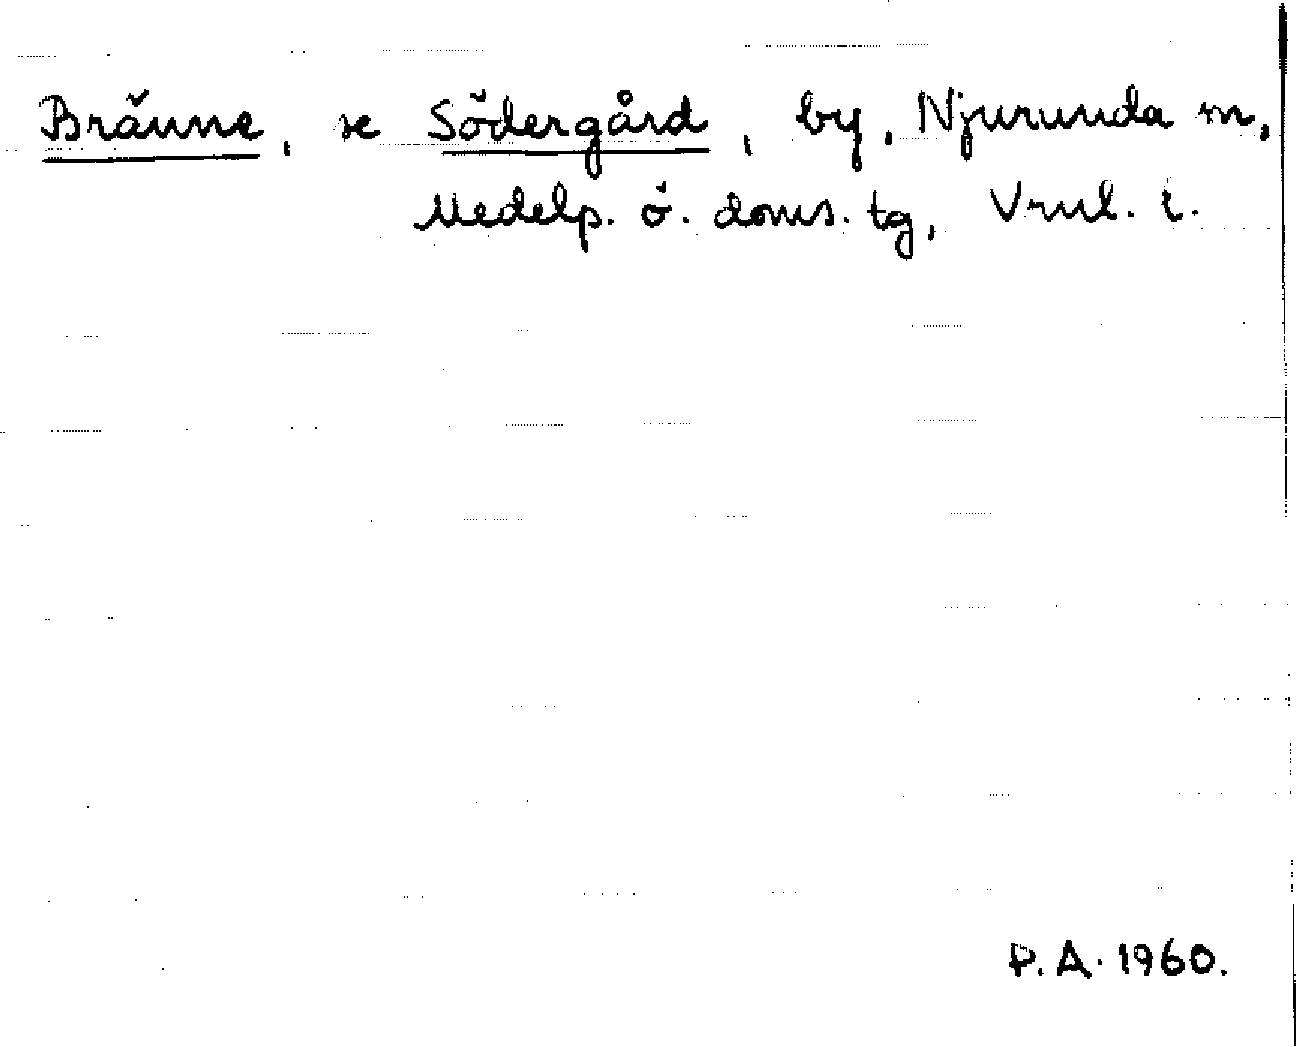 Bränne, se Södergård, by, Njurunda sn,
Medelp. ö. doms. tg, Vrnl. l.
P.A. 1960.